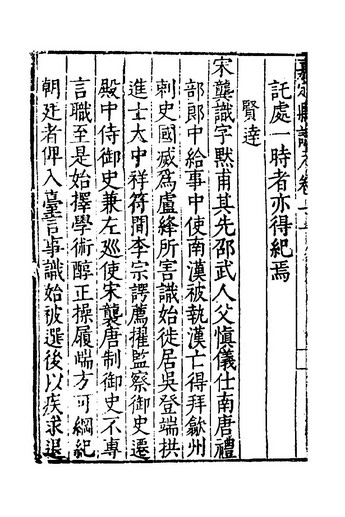 託處一時者亦得紀焉
賢達
宋龔識字默甫其先邵武人父慎儀仕南唐禮
部郎中給事中使南漢被執漢亡得拜歙州
刺史國滅爲盧絳所害識始徙居吳登端拱
進士大中祥符間李宗諤薦擢監察御史遷
殿中侍御史兼左巡使宋襲唐制御史不專
言職至是始擇學術醇正操履端方可綱紀
朝廷者俾入臺言事識始被選後以疾求退